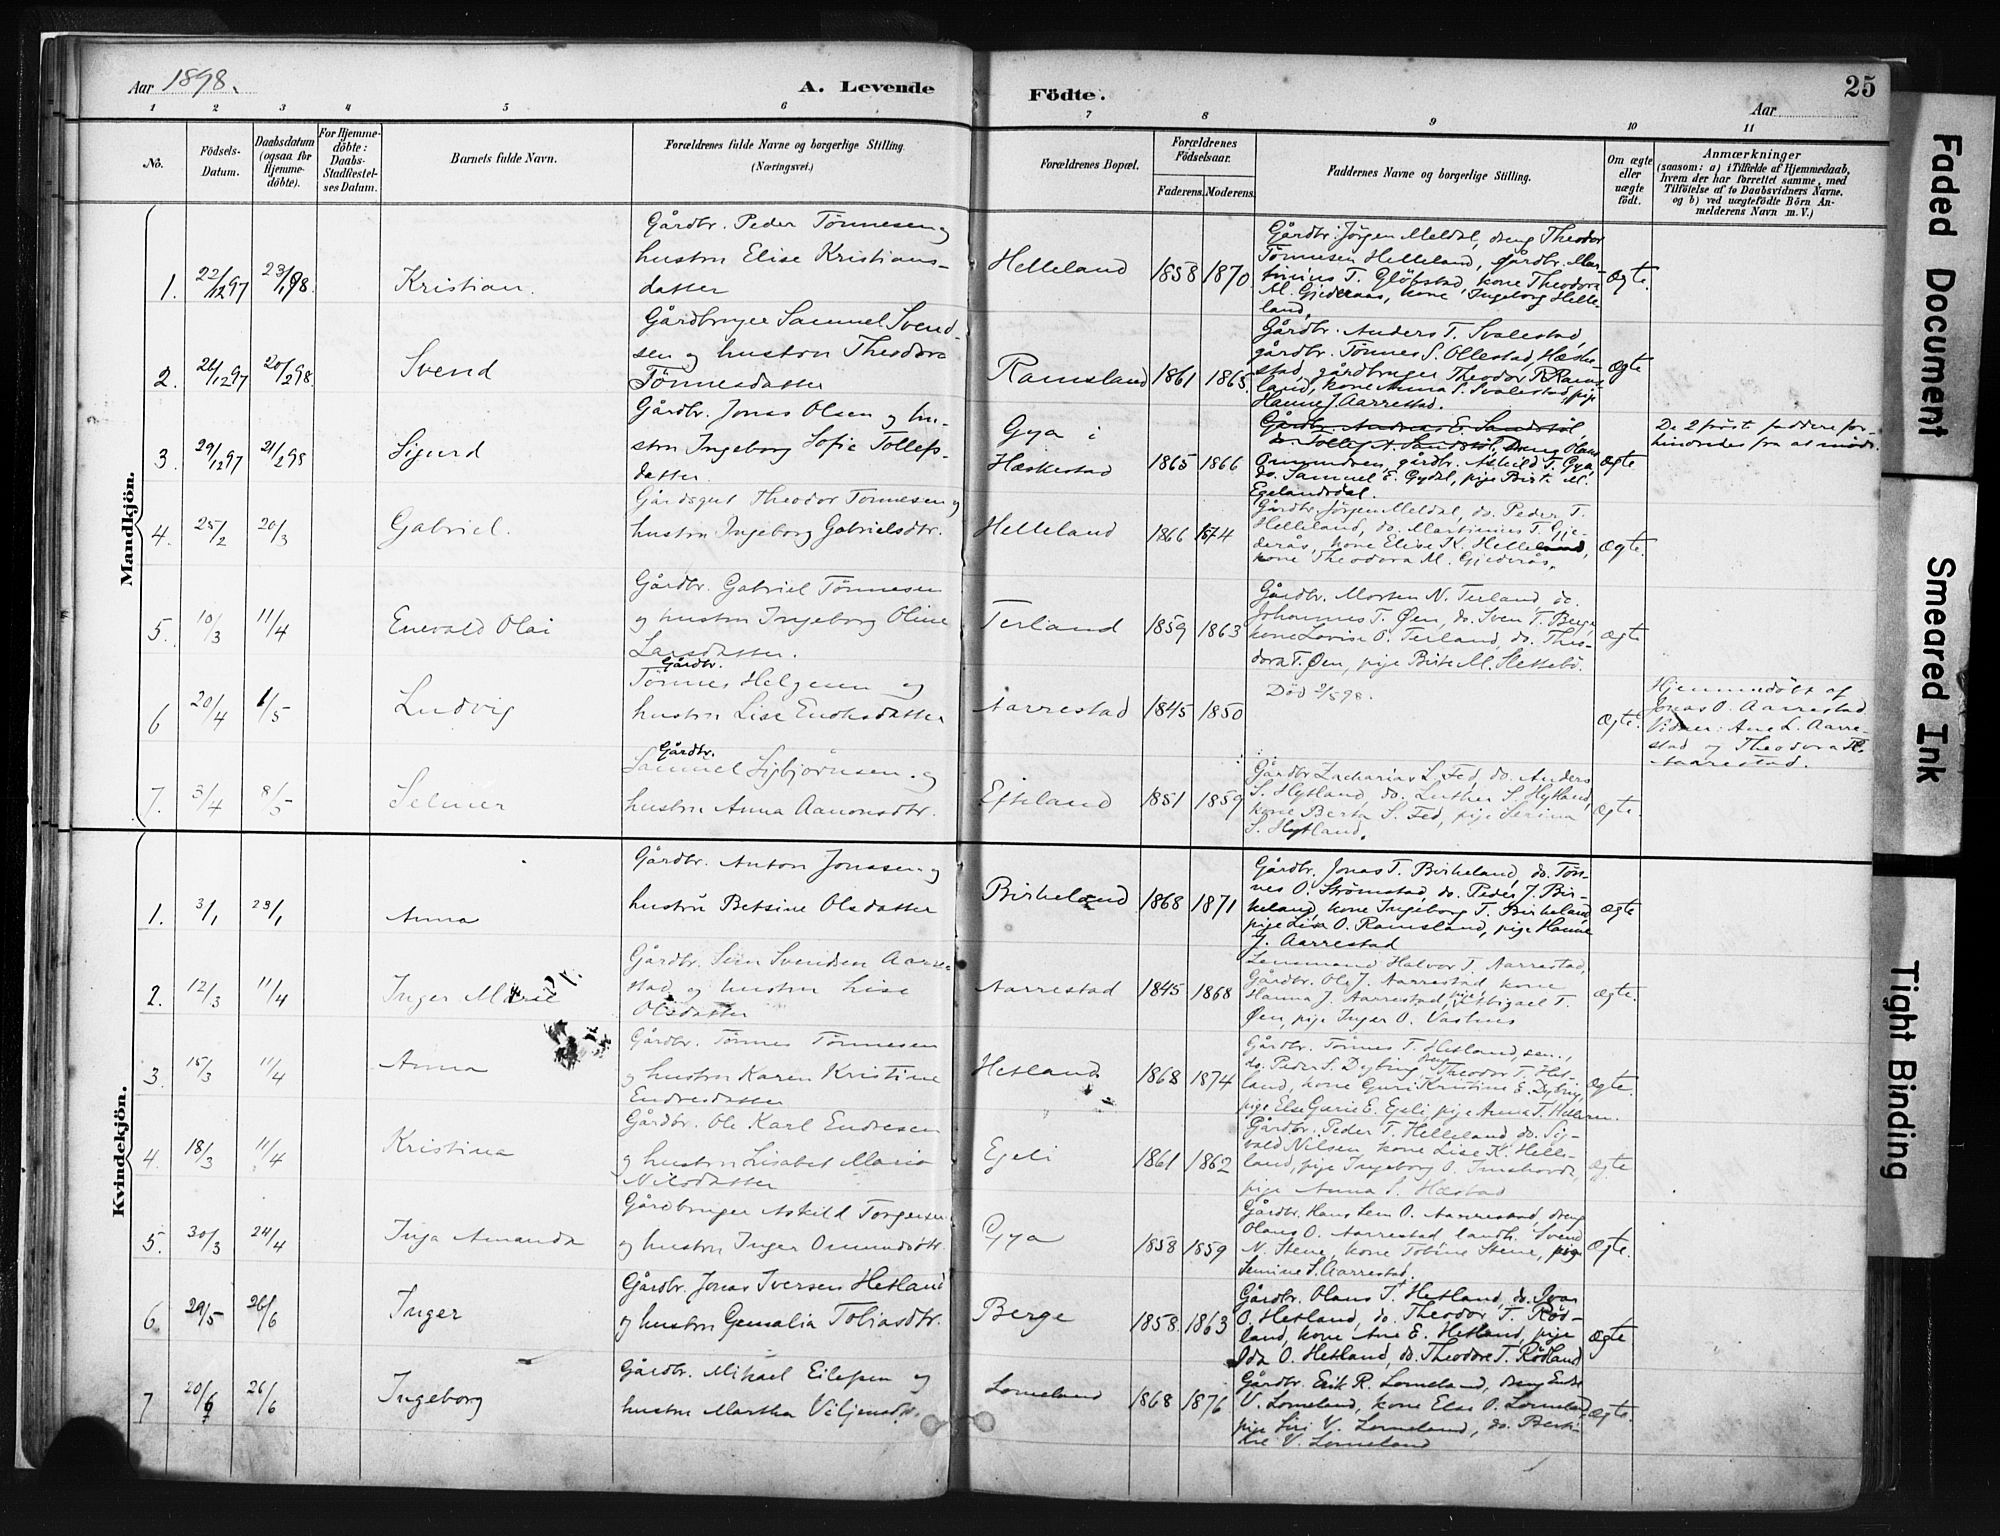 Aar 1898.
A. Levende
Födte.
Aar
25
1 2 3 4 5 6 7 8 9 10 11
No.
Födsels-
Datum.
Daabsdatum
(ogsaa for
Hjemme-
döbte).
For Hjemme-
döbte:
Daabs-
Stadfæstel-
ses Datum.
Barnets fulde Navn.
Forældrenes fulde Navne og borgerlige Stilling.
(Næringsvei.)
Forældrenes Bopæl.
Forældrenes
Födselsaar.
Faderens.
Moderens.
Faddernes Navne og borgerlige Stilling.
Om ægte
eller
uægte
födt.
Anmærkninger
(saasom: a) i Tilfælde af Hjemmedaab,
hvem der har forrettet samme, med
Tilföielse af to Daabsvidners Navne.
og b) ved uægtefödte Börn An-
melderens Navn m. V.)
Mandkjön.
1. 22/12 97 23/1 98. Kristian.
Gårdbr. Peder Tønnesen og
hustru Elise Kristians-
datter
Helleland 1858 1870
Gårdbr. Jörgen Meldal, dreng Theodor
Tønnesen Helleland, gårdbr. Mar-
tinius T. Gløpstad, kone Theodora
M. Gjederaas, kone Ingeborg Helle-
land,
Ægte.
2. 24/12 97 20/2 98. Svend
Gårdbruger Samuel Svend-
sen og hustru Theodora
Tönnesdatter
Ramsland 1861 1865
Gårdbr. Anders T. Svalestad,
gårdbr. Tönnes S. Ollestad, Hæske-
stad, gårdbruger Theodor R. Rams-
land, kone Anna S. Svalestad, pige
Hanne J. Aarrestad.
Ægte
3. 29/12 97 21/2 98 Sigurd
Gårdbr. Jonas Olsen og hu-
stru Ingeborg Sofie Tollefs-
datter.
Gya i
Hæskestad
1865 1866
Gårdbr. Andreas E. Sandstöl
do. Tollef A. Sandstöl, Dreng Olaus
Omundsen, gårdbr. Askild T. Gya,
do. Samuel E. Gydal, pige Birt. M.
Egelandsdal.
Ægte
De 2 först. faddere for-
hindredes fra at möde.
4. 25/2 20/3 Gabriel.
Gårdsgut Theodor Tönnesen og
hustru Ingeborg Gabrielsdtr.
Helleland 1866 1874
Gårdbr. Jörgen Meldal, do. Peder T.
Helleland, do. Martinius T. Gje-
derås, kone Elise K. Helleland,
kone Theodora M. Gjederås.
Ægte.
5. 10/3 11/4 Enevald Olai
Gårdbr. Gabriel Tönnesen
og hustru Ingeborg Oline
Larsdatter.
Terland 1859 1863
Gårdbr. Morten N. Terland, do.
Johannes T. Øen, do. Sven T. Berge,
kone Lovise O. Terland, do. Theo-
dora T. Øen, pige Birte M. Slettebö.
Ægte
6 20/4 1/5 Ludvig
Gårdbr.
Tönnes Helgesen og
hustru Lise Endresdatter
Aarrestad 1845 1850
Død 2/5 98.
Ægte.
Hjemmedöbt af
Jonas O. Aarrestad
Vidner: Ane L. Aarre-
stad og Theodora T.
Aarrestad.
7. 3/4 8/5 Selmer
Gårdbr.
Samuel Sigbjørnsen og
hustru Anna Aanonsdtr.
Efteland 1851 1859
Gårdbr Zacharias L. Fed, do. Anders
S. Hytland, do. Luther S. Hytland,
kone Berta S. Fed, pige Serina
S. Hytland.
Ægte.
Kvindekjön.
1. 3/1 23/1 Anna
Gårdbr. Anton Jonssen og
hustru Betsine Olsdatter
Birkeland 1868 1871
Gårdbr. Jonas T. Birkeland, do. Tön-
nes O. Strømstad, do. Peder J. Bir-
keland, kone Ingeborg T. Birkeland,
pige Lisa O. Ramsland, pige Hanne
J. Aarrestad
Ægte
2. 12/3 11/4 Inger Marie
Gårdbr. Sven Svendsen Aarre-
stad og hustru Lise
Olsdatter
Aarrestad 1845 1868
Lensmand Halvor T. Aarrestad,
Gårdbr. Ole J. Aarrestad, kone
Hanna J. Aarrestad, pige Abigael T.
Øen, pige Inger O. Vashus
Ægte.
3. 15/3 11/4 Anna
Gårdbr. Tönnes Tönnesen
og hustru Karen Kristine
Endresdatter
Hetland 1868 1874
Gårdbr. Tönnes T. Hetland, sen.,
do. Peder S. Dybing, dreng Theodor T. Het-
land, kone Guri Kristine E. Dybing,
pige Else Gurie E. Egeli, pige Anna T. Helleren.
Ægte.
4. 18/3 11/4 Kristina
Gårdbr. Ole Karl Endresen
og hustru Lisabet Maria
Nilsdatter
Egeli 1861 1862
Gårdbr. Peder T. Helleland, do. Sig-
vald Nilsen, kone Lise K. Helle-
land, pige Ingeborg O.
pige Anna S. Hæstad
Ægte
5. 30/3 24/4 Inga Amanda
Gårdbruger Askild Torgersen
og hustru Inger Omundsdtr.
Gya 1858 1859
Gårdbr. Hans Lem O. Aarrestad, dreng
Olaus O. Aarrestad, landh. Svend
N. Stene, kone Tobine Stene, pige
Semine S. Aarrestad.
Ægte.
6 29/5 26/6 Inger
Gårdbr. Jonas Iversen Hetland
og hustru Gemalia Tobiasdtr.
Berge 1858. 1863
Gårdbr. Olaus T. Hetland, do. Ivar
O. Hetland, do. Theodor T. Rød-
land, kone Ane E. Hetland, pige
Ida O. Hetland, do. Theodore T. Rödland
Ægte
7 20/6 26/6 Ingeborg
Gårdbr. Mikael Eilefsen og
hustru Martha Viljumsdtr.
Lomeland 1868 1876
Gårdbr. Erik R. Lomeland, dreng Endre
V. Lomeland, kone Else O. Lomeland,
pige Siri V. Lomeland, do. Berti-
ne V. Lomeland
Ægte.
Faded Document
Smeared Ink
Tight Binding